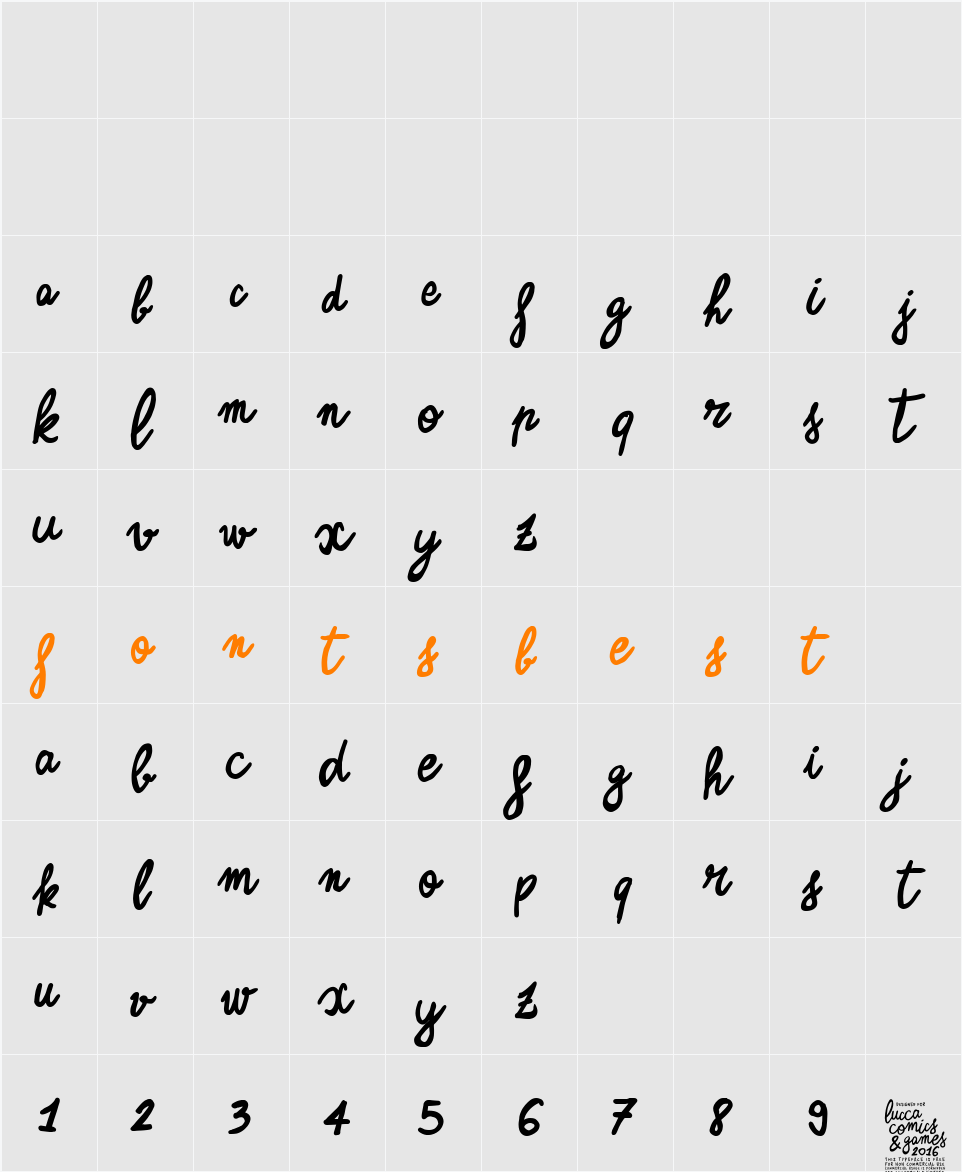 a b c d e f g h i j
k l m n o p q r s t
u v w x y z
f o n t s b e s t
a b c d e f g h i j
k l m n o p q r s t
u v w x y z
1 2 3 4 5 6 7 8 9
DESIGNED FOR
lucca
comics
& games
2016
THIS TYPEFACE IS FREE
FOR NON COMMERCIAL USE
COMMERCIAL USAGE IS FORBIDDEN